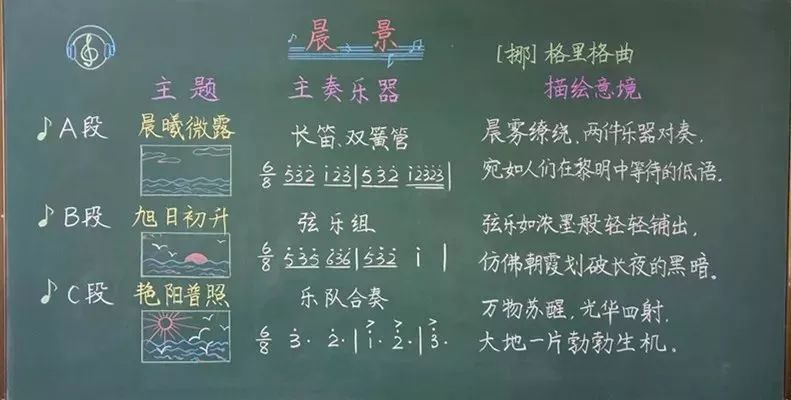 晨景
[挪]格里格曲
主题 主奏乐器 描绘意境
A段 晨曦微露 长笛、双簧管 晨雾缭绕,两件乐器对奏,
6/8 532 123|532 12323| 宛如人们在黎明中等待的低语。
B段 旭日初升 弦乐组 弦乐如浓墨般轻轻铺出,
6/8 535 636|532 i | 仿佛朝霞划破长夜的黑暗。
C段 艳阳普照 乐队合奏 万物苏醒,光华四射,
6/8 3. 2.|1. 2.|3. 大地一片勃勃生机。